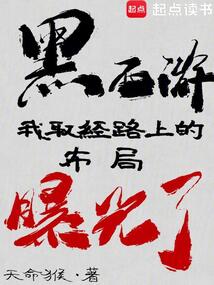 起点 起点读书
黑西游
我取経路上的
布局
曝光了
天命猴·著